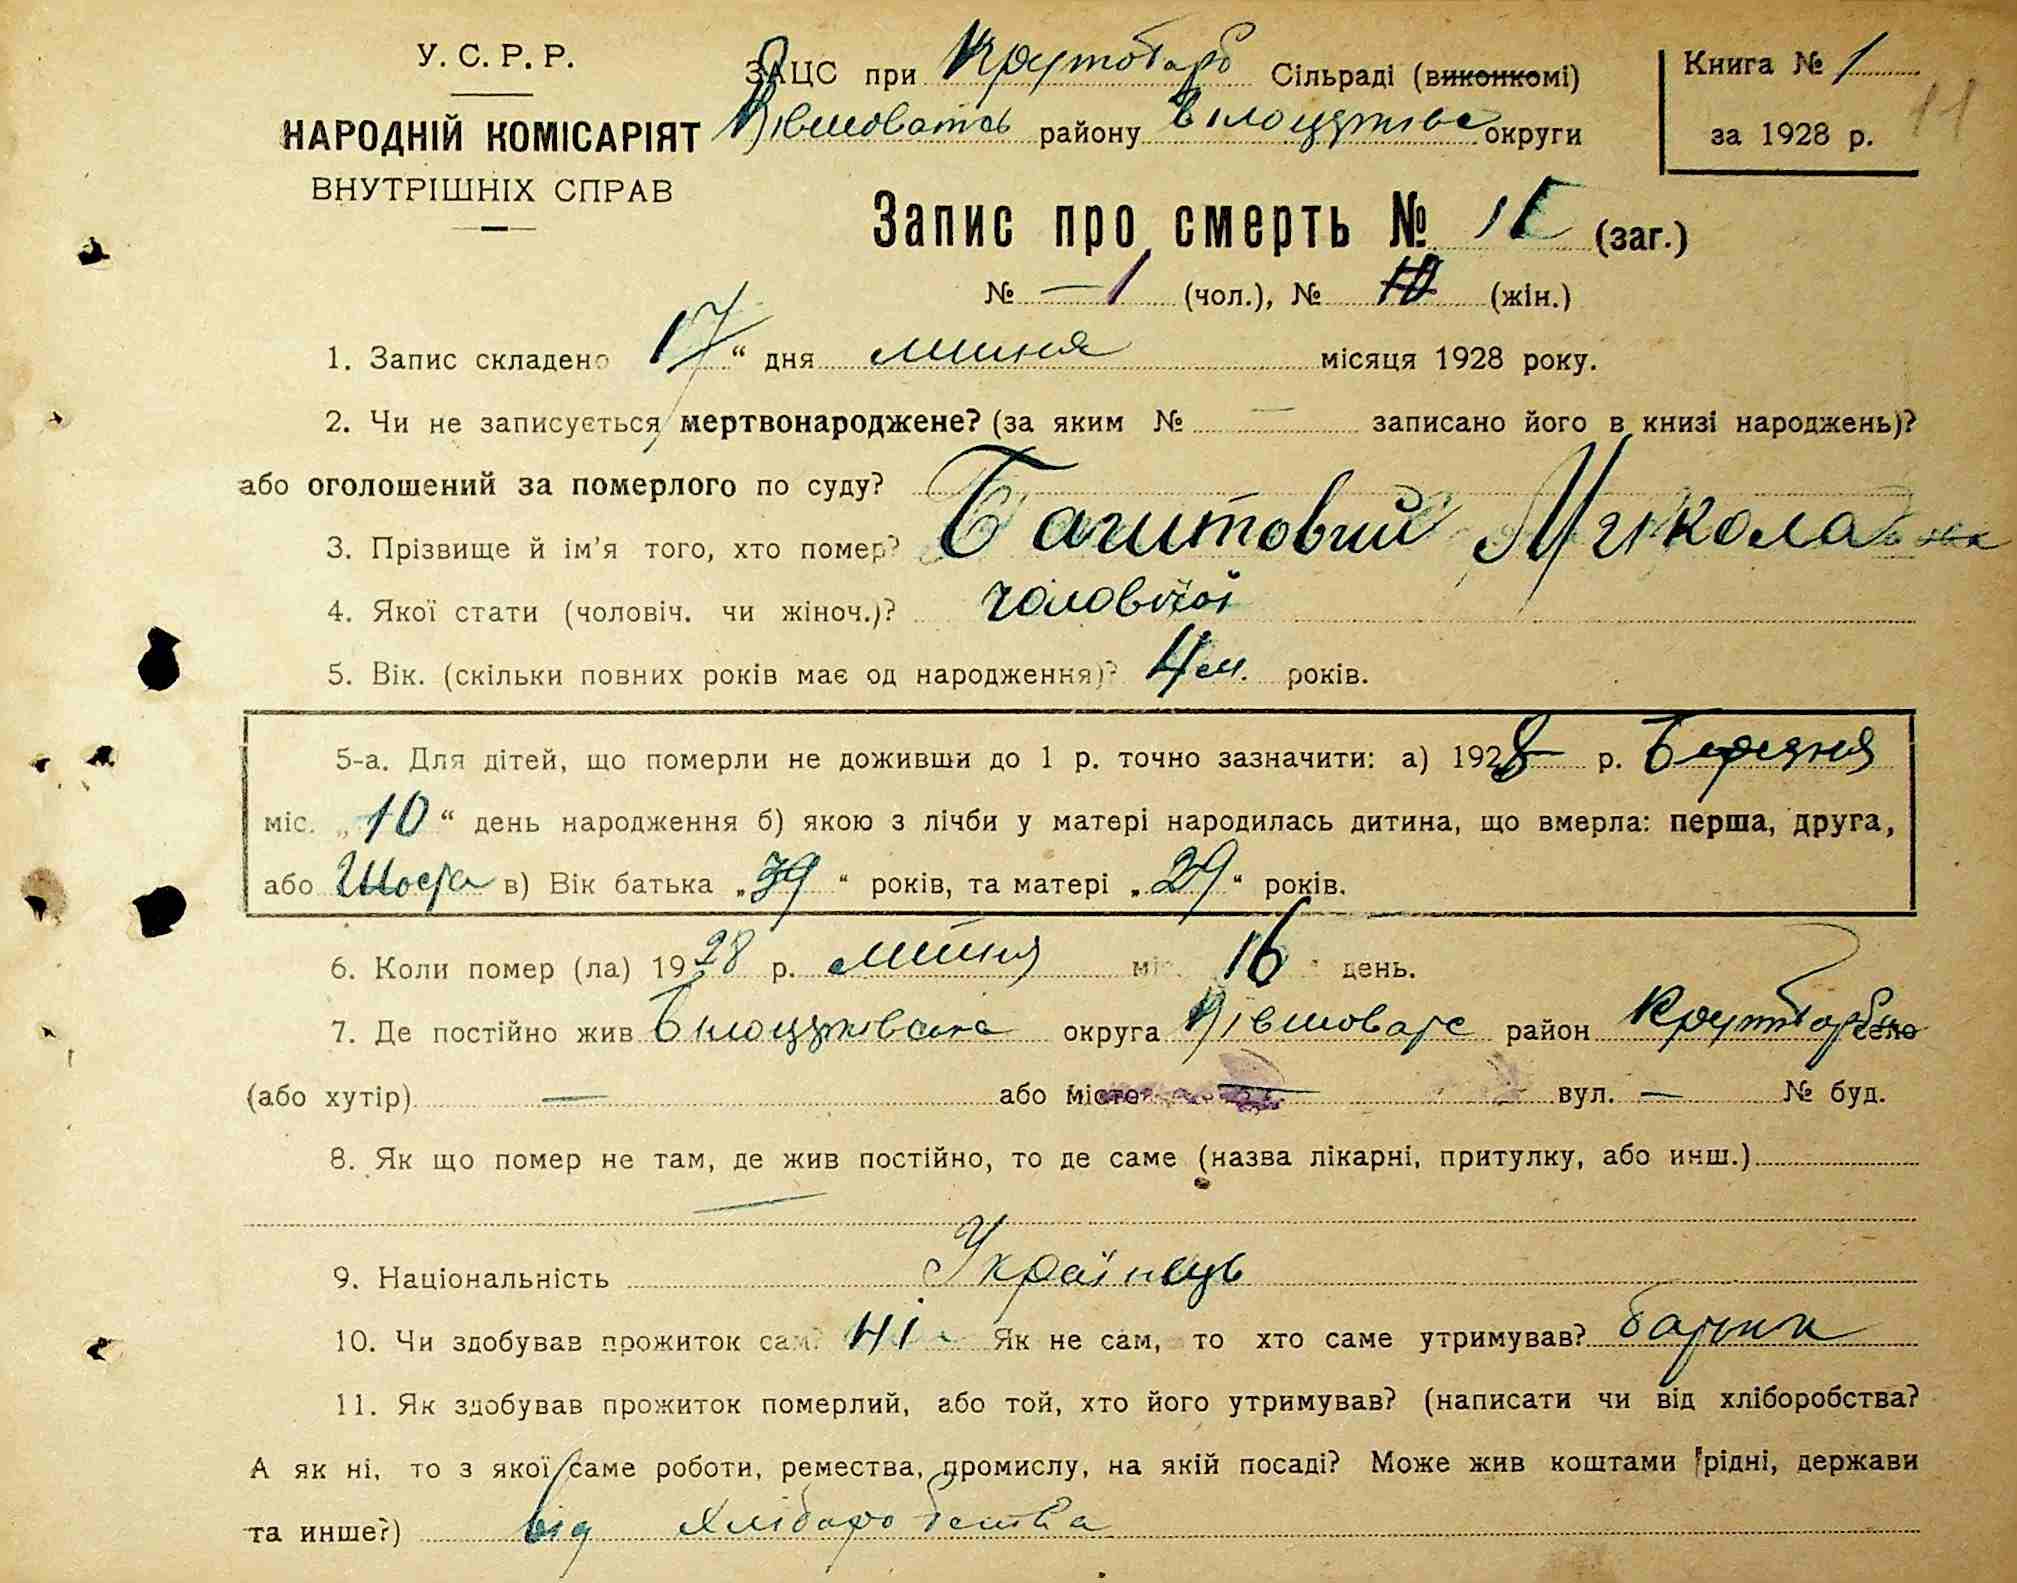 У. С. Р. Р.
НАРОДНІЙ КОМІСАРІЯТ
ВНУТРІШНІХ СПРАВ
ЗАЦС при Крутобарб Сільраді (виконкомі)
району округи
Книга № 1
за 1928 р.
11
Запис про смерть № (заг.)
№ — 1 (чол.), № 10 (жін.)
1. Запис складено 17 “ дня липня місяця 1928 року.
2. Чи не записується мертвонароджене? (за яким № — записано його в книзі народжень)?
або оголошений за померлого по суду?
3. Прізвище й ім'я того, хто помер? Баштовий Микола
4. Якої стати (чоловіч. чи жіноч.)? чоловічої
5. Вік. (скільки повних років має од народження)? 4 м. років.
5-а. Для дітей, що померли не доживши до 1 р. точно зазначити: а) 1928 р. Березня
міс. „ 10 “ день народження б) якою з лічби у матері народилась дитина, що вмерла: перша, друга,
або Шоста в) Вік батька „ 39 “ років, та матері „ 29 “ років.
6. Коли помер (ла) 1928 р. липня міс. 16 “ день.
7. Де постійно жив округа район село
(або хутір) — або місто — вул. — № буд.
8. Як що помер не там, де жив постійно, то де саме (назва лікарні, притулку, або инш.)
—
9. Національність Українець
10. Чи здобував прожиток сам? Ні Як не сам, то хто саме утримував? батьки
11. Як здобував прожиток померлий, або той, хто його утримував? (написати чи від хліборобства?
А як ні, то з якої саме роботи, ремества, промислу, на якій посаді? Може жив коштами рідні, держави
та инше?) від хліборобства